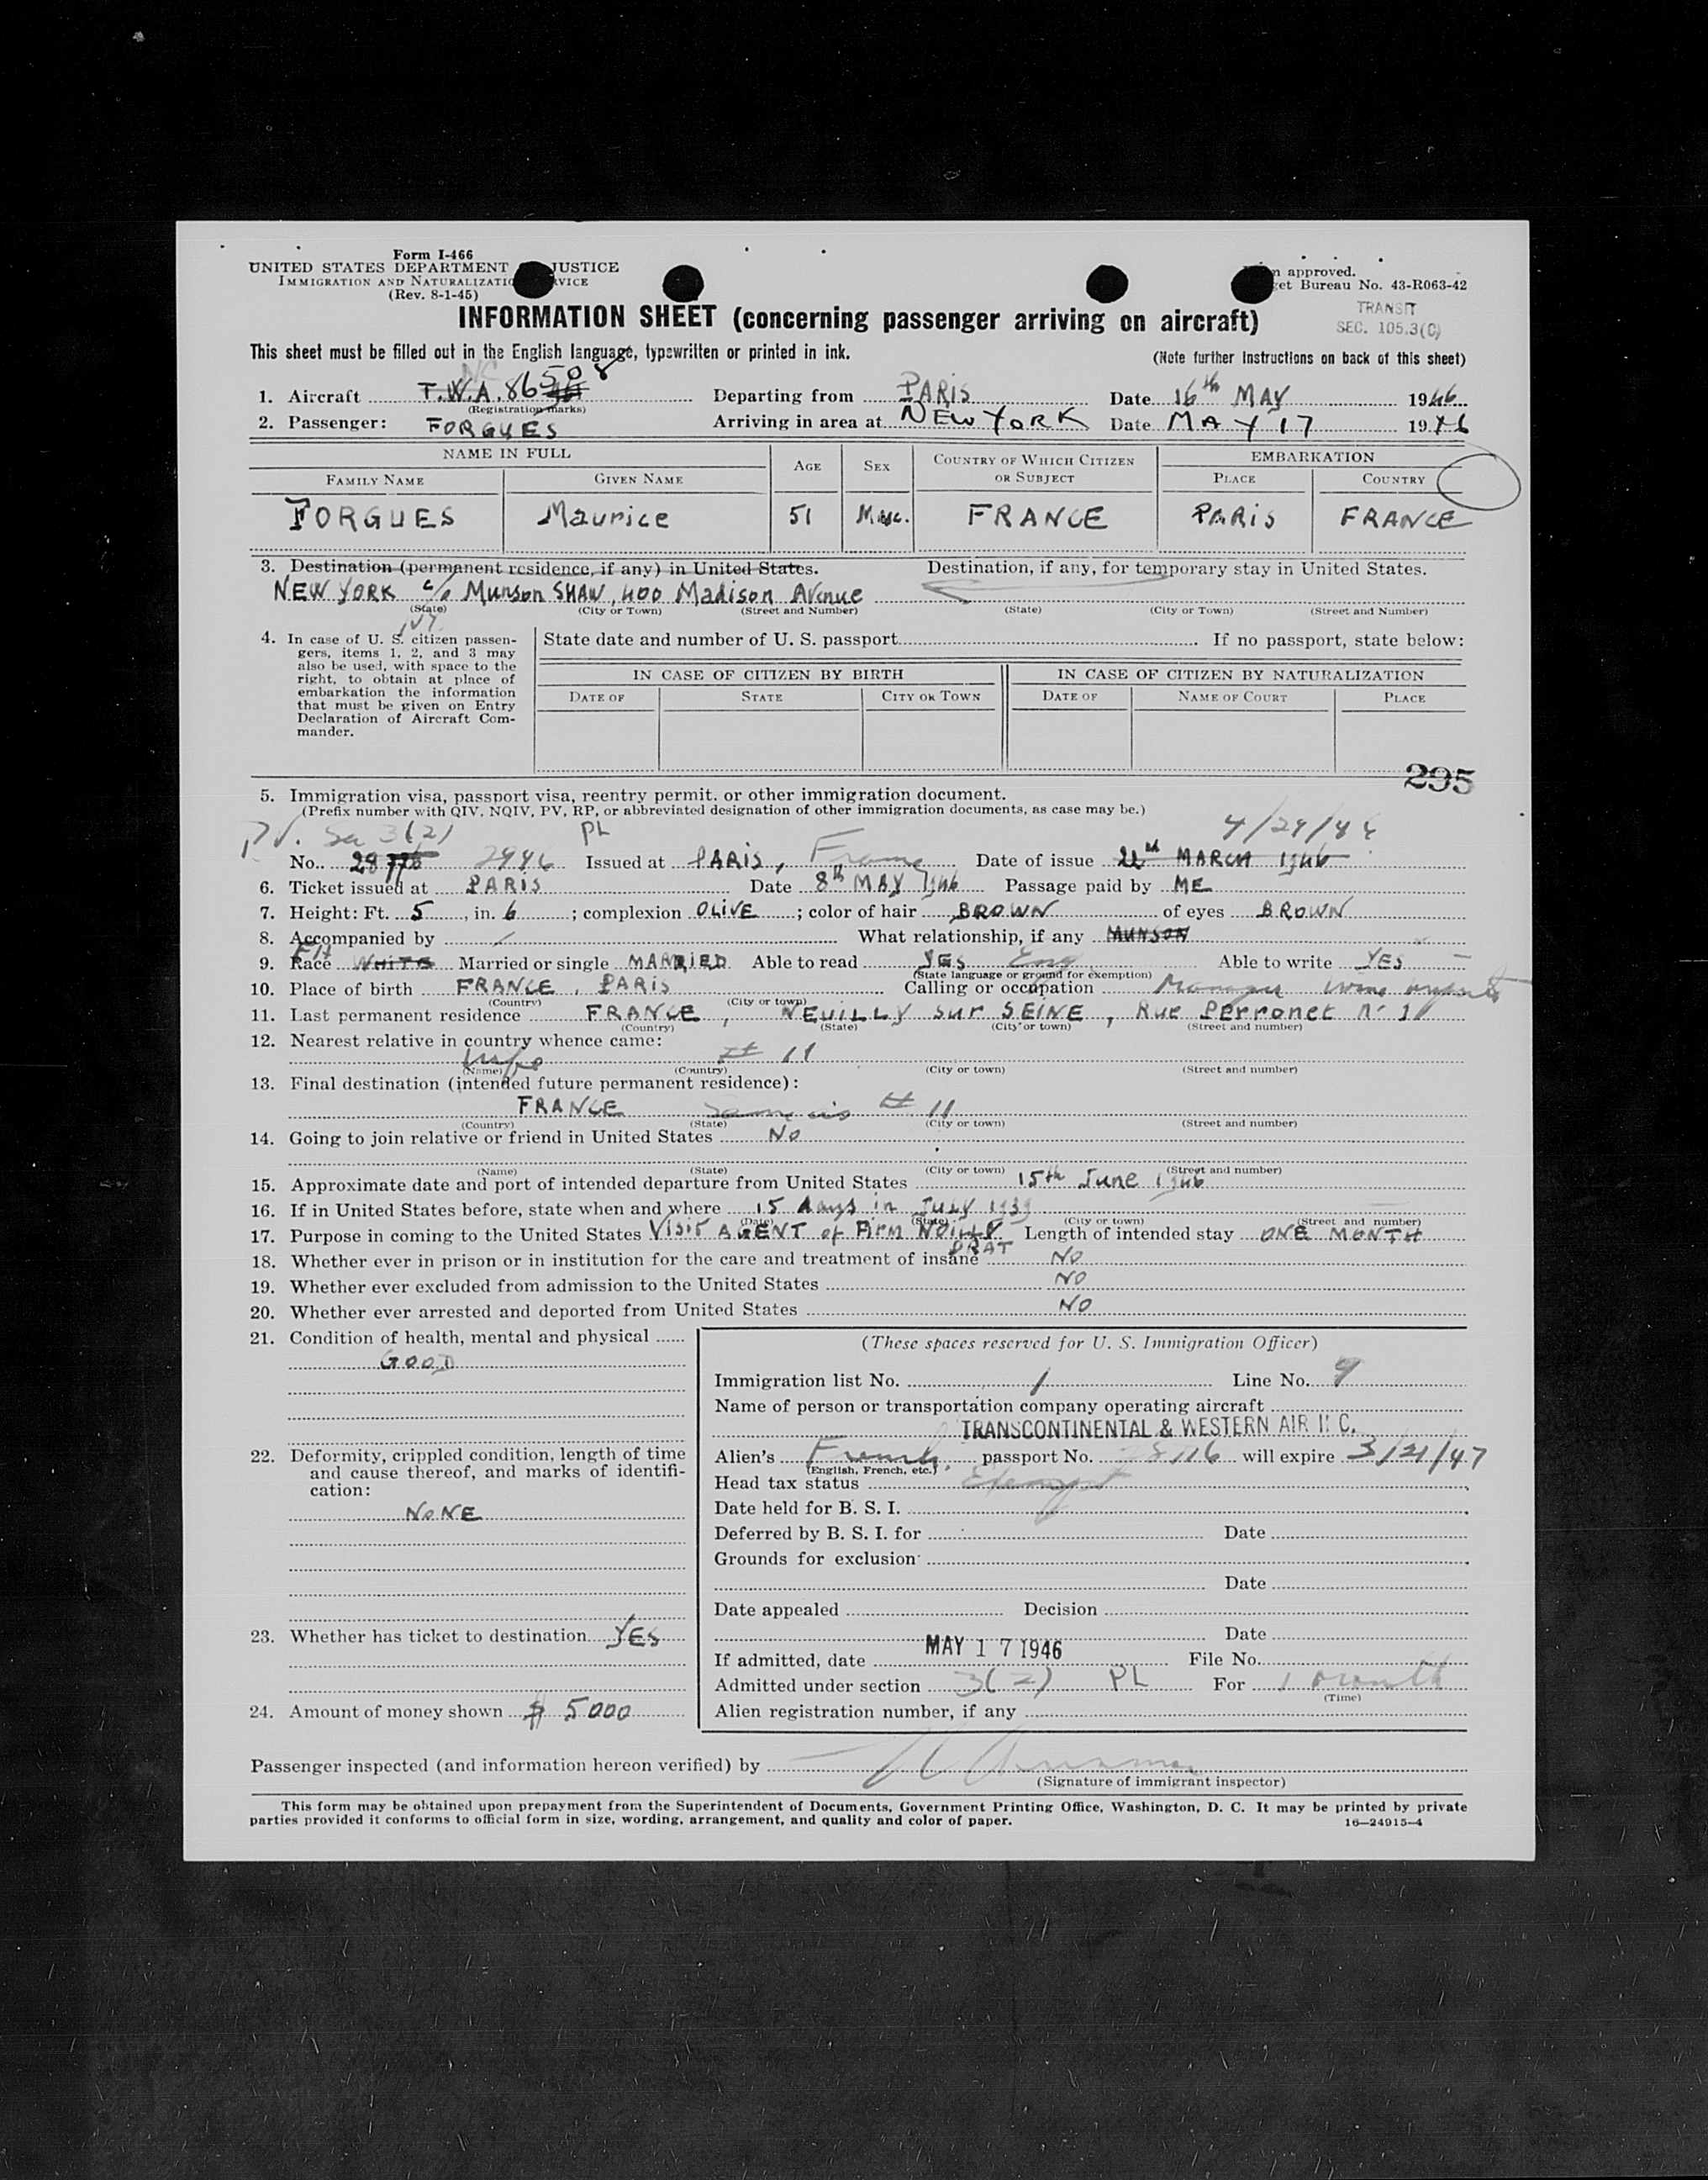 Form I-466
UNITED STATES DEPARTMENT JUSTICE
IMMIGRATION AND NATURALIZATIO VICE
(Rev. 8-1-45)
n approved.
get Bureau No. 43-R063-42
TRANSIT
SEC. 105.3(C)
INFORMATION SHEET (concerning passenger arriving on aircraft)
This sheet must be filled out in the English language, typewritten or printed in ink.
(Note further instructions on back of this sheet)
NC
1. Aircraft T.W.A. 86508 Departing from PARIS Date 16th MAY 1946
(Registration marks)
2. Passenger: FORGUES Arriving in area at NEW YORK Date MAY 17 1946
NAME IN FULL AGE SEX COUNTRY OF WHICH CITIZEN OR SUBJECT EMBARKATION
FAMILY NAME GIVEN NAME PLACE COUNTRY
FORGUES Maurice 51 Masc. FRANCE PARIS FRANCE
3. Destination (permanent residence, if any) in United States. Destination, if any, for temporary stay in United States.
NEW YORK c/o Munson SHAW, 400 Madison Avenue
(State) (City or Town) (Street and Number) (State) (City or Town) (Street and Number)
4. In case of U. S. citizen passengers, items 1, 2, and 3 may also be used, with space to the right, to obtain at place of embarkation the information that must be given on Entry Declaration of Aircraft Commander.
State date and number of U. S. passport If no passport, state below:
IN CASE OF CITIZEN BY BIRTH IN CASE OF CITIZEN BY NATURALIZATION
DATE OF STATE CITY OR TOWN DATE OF NAME OF COURT PLACE
295
5. Immigration visa, passport visa, reentry permit, or other immigration document.
(Prefix number with QIV, NQIV, PV, RP, or abbreviated designation of other immigration documents, as case may be.)
PV. Sec 3(2) PL 4/29/46
No. Issued at PARIS, France Date of issue MARCH 1946
6. Ticket issued at PARIS Date 8th MAY 1946 Passage paid by ME
7. Height: Ft. 5, in. 6; complexion OLIVE; color of hair BROWN of eyes BROWN
8. Accompanied by / What relationship, if any MUNSON
9. Race WHITE FH Married or single MARRIED Able to read YES Eng Able to write YES
(State language or ground for exemption)
10. Place of birth FRANCE, PARIS Calling or occupation Manager wine
(Country) (City or town)
11. Last permanent residence FRANCE, NEUILLY sur SEINE, Rue Perronet
(Country) (State) (City or town) (Street and number)
12. Nearest relative in country whence came:
Wife # 11
(Name) (Country) (City or town) (Street and number)
13. Final destination (intended future permanent residence):
FRANCE Same as # 11
(Country) (State) (City or town) (Street and number)
14. Going to join relative or friend in United States No
(Name) (State) (City or town) (Street and number)
15. Approximate date and port of intended departure from United States 15th June 1946
16. If in United States before, state when and where 15 days in July 1939
(Date) (State) (City or town) (Street and number)
17. Purpose in coming to the United States Visit AGENT of Firm NOILLY PRAT Length of intended stay ONE MONTH
18. Whether ever in prison or in institution for the care and treatment of insane NO
19. Whether ever excluded from admission to the United States NO
20. Whether ever arrested and deported from United States NO
21. Condition of health, mental and physical
GOOD
22. Deformity, crippled condition, length of time and cause thereof, and marks of identification:
NONE
23. Whether has ticket to destination YES
24. Amount of money shown $ 5000
(These spaces reserved for U. S. Immigration Officer)
Immigration list No. 1 Line No. 9
Name of person or transportation company operating aircraft
TRANSCONTINENTAL & WESTERN AIR INC.
Alien's French passport No. will expire 3/21/47
(English, French, etc.)
Head tax status Exempt
Date held for B. S. I.
Deferred by B. S. I. for Date
Grounds for exclusion
Date
Date appealed Decision
Date
If admitted, date MAY 17 1946 File No.
Admitted under section 3(2) PL For 1 month
(Time)
Alien registration number, if any
Passenger inspected (and information hereon verified) by
(Signature of immigrant inspector)
This form may be obtained upon prepayment from the Superintendent of Documents, Government Printing Office, Washington, D. C. It may be printed by private
parties provided it conforms to official form in size, wording, arrangement, and quality and color of paper.
16—24915-4